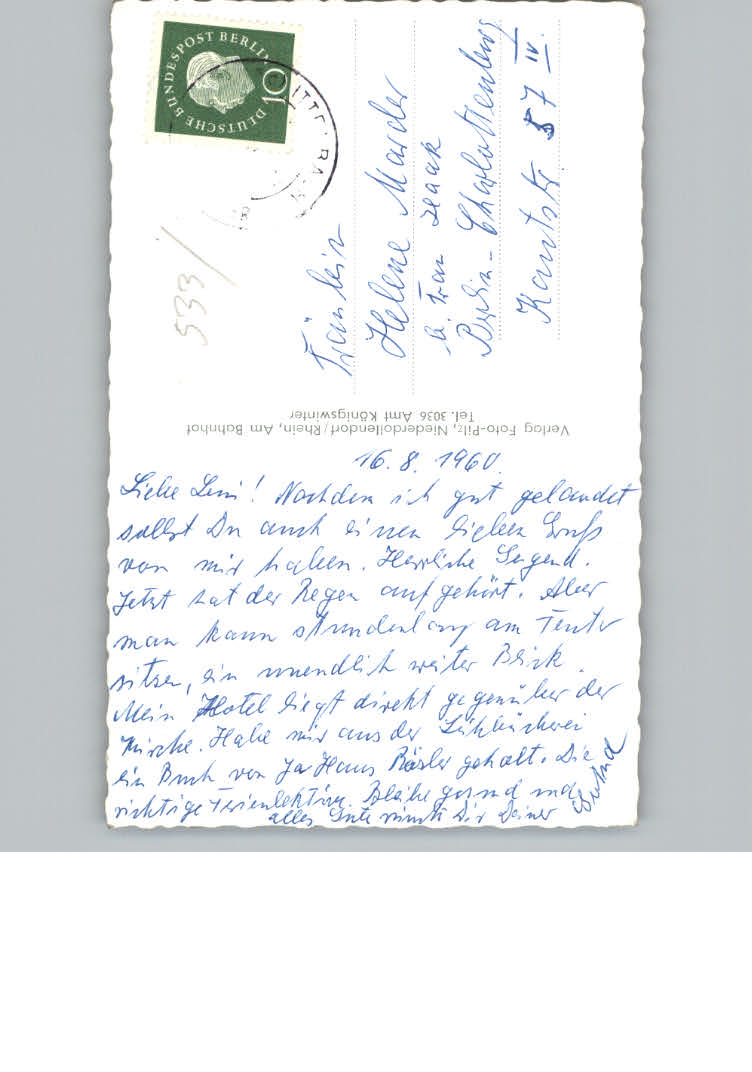 DEUTSCHE BUNDESPOST BERLIN
10
533/
Fräulein
Helene Marder
b. Frau Haack
Berlin-Charlottenburg
Kantstr 57 IV.
Verlag Foto-Pilz, Niederdollendorf/Rhein, Am Bahnhof
Tel. 3036 Amt Königswinter
16.8.1960.
Liebe Leni! Nachdem ich gut gelandet
sollst Du auch einen lieben Gruß
von mir haben. Herrliche Gegend.
Jetzt hat der Regen aufgehört. Aber
man kann stundenlang am Fenster
sitzen, ein unendlich weiter Blick.
Mein Hotel liegt direkt gegenüber der
Kirche. Habe mir aus der Leihbücherei
ein Buch von Jo Hans Rösler geholt. Die
richtige Ferienlektüre. Bleibe gesund und
alles Gute wünscht Dir Deine